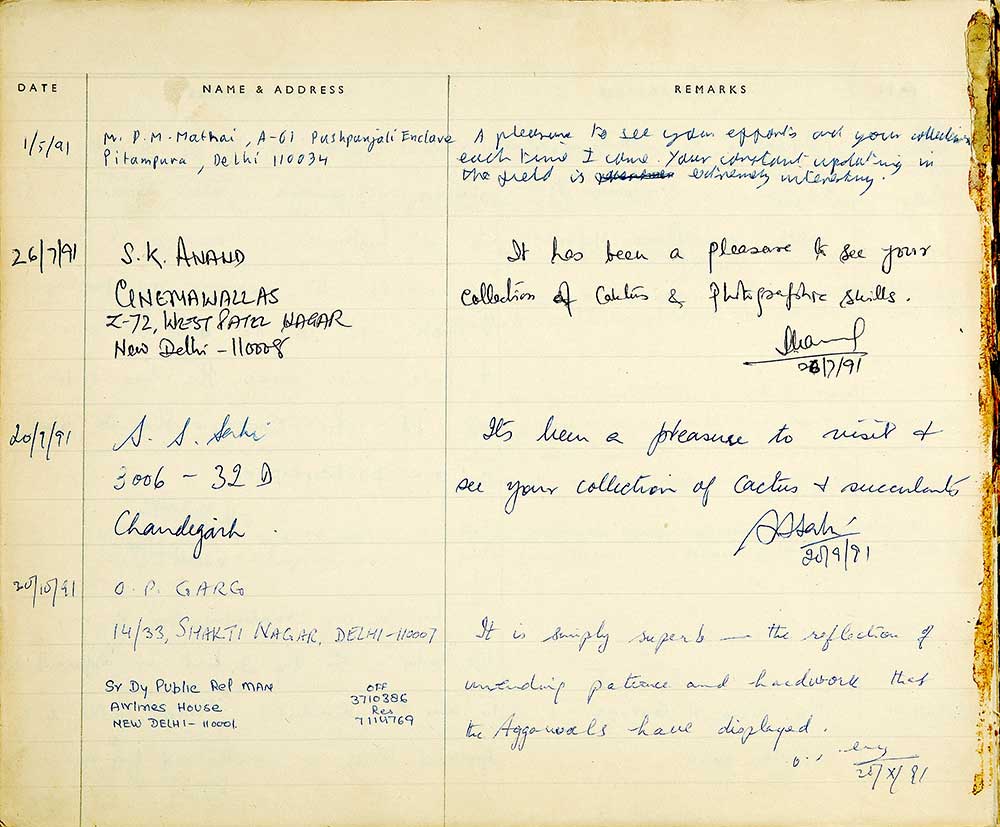 DATE NAME & ADDRESS REMARKS
1/5/91
Mr. P.M. Mathai, A-61 Pushpanjali Enclave
Pitampura, Delhi 110034
A pleasure to see your efforts and your collections
each time I come. Your constant updating in
the field is extremely interesting.
26/7/91
S.K. ANAND
CINEMAWALLAS
Z-72, WEST PATEL NAGAR
New Delhi - 110008
It has been a pleasure to see your
collection of Cactus & Photographic skills.
26/7/91
20/9/91
S. S. Sahi
3006 - 32 D
Chandigarh.
It's been a pleasure to visit &
see your collection of Cactus & succulents
20/9/91
20/10/91
O. P. GARG
14/33, SHAKTI NAGAR, DELHI-110007
Sr Dy Public Rel MAN
Airlines House
NEW DELHI - 110001.
OFF
3710386
Res
7114769
It is simply superb — the reflection of
unending patience and hardwork that
the Aggarwals have displayed.
20/X/91